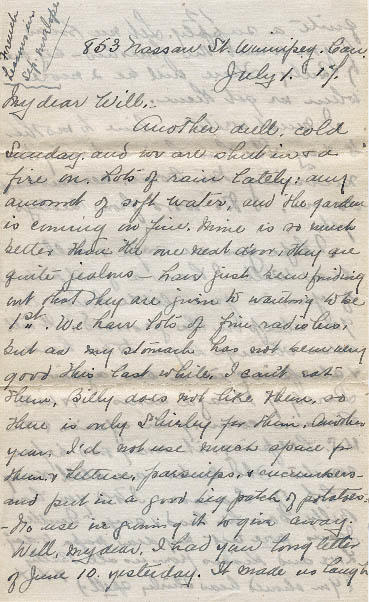 French
Lessons in
sep. envelope
853 Nassau St. Winnipeg. Can.
July 1. 17
My dear Will;-
Another dull, cold
Sunday, and we are shut in & a
fire on. Lots of rain lately: any
amount of soft water, and the garden
is coming on fine. Mine is so much
better than the one next door, they are
quite jealous - have just been finding
out that they are given to wanting to be
1st. We have lots of fine radishes,
but as my stomach has not been very
good this last while, I can't eat
them, Billy does not like them, so
there is only Shirley for them. Another
year, I'd not use much space for
them, & lettuce, parsnips, & cucumbers -
and put in a good big patch of potatoes -
- No use in growing it to give away.
Well, my dear, I had your long letter
of June 10. yesterday. It made us laugh